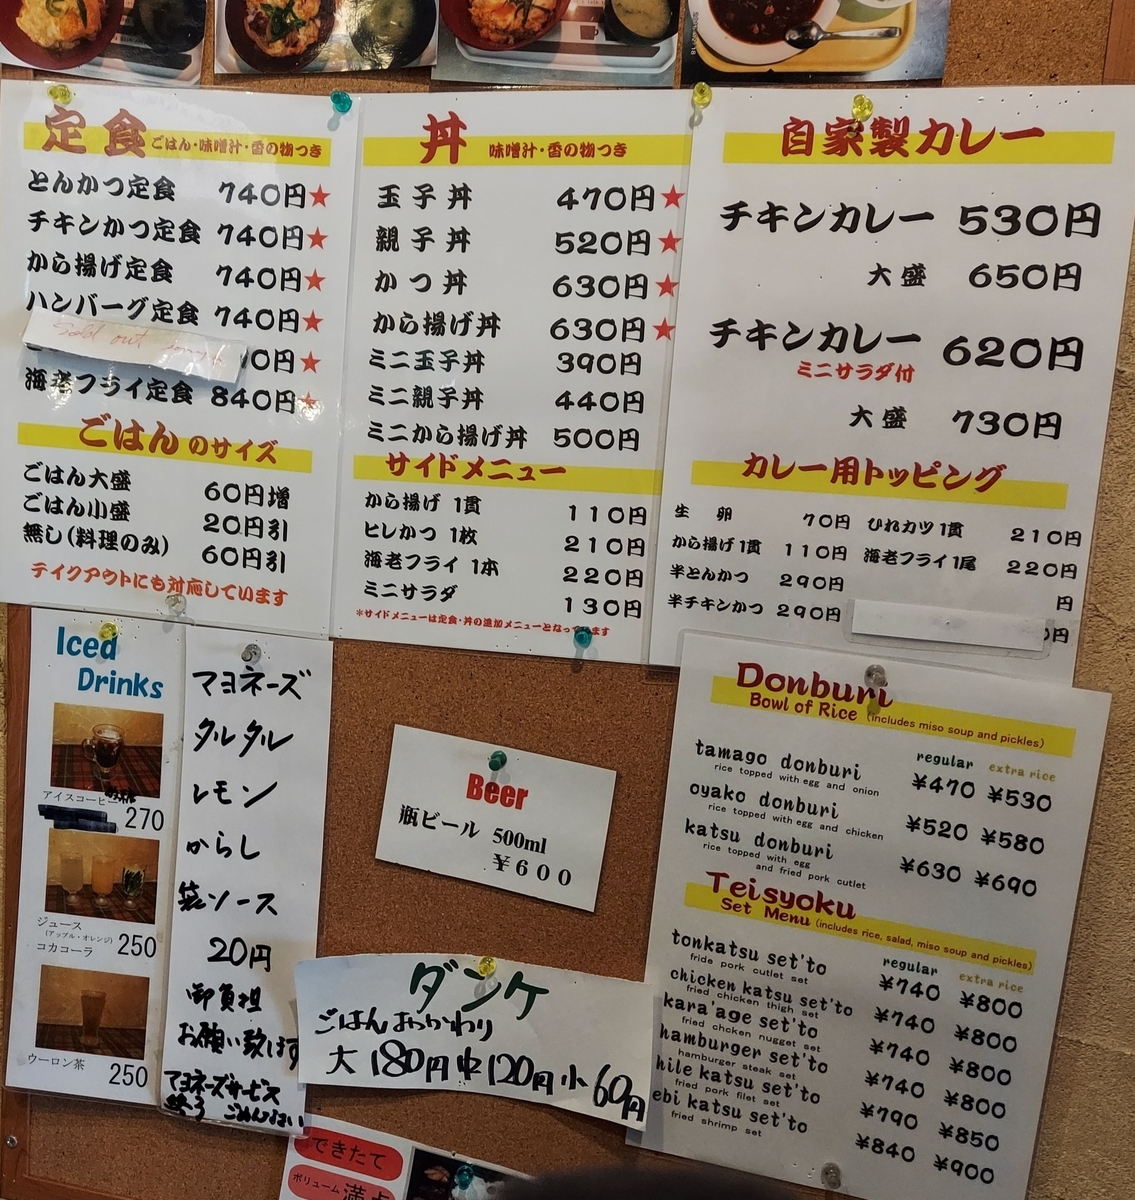 定食 ごはん・味噌汁・香の物つき
とんかつ定食 740円★
チキンかつ定食 740円★
から揚げ定食 740円★
ハンバーグ定食 740円★
Sold out
0円★
海老フライ定食 840円★
ごはんのサイズ
ごはん大盛 60円増
ごはん小盛 20円引
無し(料理のみ) 60円引
テイクアウトにも対応しています
丼 味噌汁・香の物つき
玉子丼 470円★
親子丼 520円★
かつ丼 630円★
から揚げ丼 630円★
ミニ玉子丼 390円
ミニ親子丼 440円
ミニから揚げ丼 500円
サイドメニュー
から揚げ 1貫 110円
ヒレかつ 1枚 210円
海老フライ 1本 220円
ミニサラダ 130円
*サイドメニューは定食・丼の追加メニューとなっています
自家製カレー
チキンカレー 530円
大盛 650円
チキンカレー 620円
ミニサラダ付
大盛 730円
カレー用トッピング
生卵 70円 ひれカツ1貫 210円
から揚げ1貫 110円 海老フライ1尾 220円
半とんかつ 290円 円
半チキンかつ 290円 0円
Iced
Drinks
アイスコーヒー
270
ジュース
(アップル・オレンジ)
コカコーラ 250
ウーロン茶 250
マヨネーズ
タルタル
レモン
からし
ソース
20円
御負担
お願い致します
マヨネーズサービス
ごめんなさい
Beer
瓶ビール 500ml
￥600
ダンケ
ごはんおかわり
大180円 中120円 小60円
できたて
ボリューム満点
Donburi
Bowl of Rice (includes miso soup and pickles)
regular extra rice
tamago donburi ¥470 ¥530
rice topped with egg and onion
oyako donburi ¥520 ¥580
rice topped with egg and chicken
katsu donburi ¥630 ¥690
rice topped with egg
and fried pork cutlet
Teisyoku
Set Menu (includes rice, salad, miso soup and pickles)
regular extra rice
tonkatsu set'to ¥740 ¥800
fride pork cutlet set
chicken katsu set'to ¥740 ¥800
fried chicken thigh set
kara'age set'to ¥740 ¥800
fried chcken nugget set
hamburger set'to ¥740 ¥800
hamburger steak set
hile katsu set'to ¥790 ¥850
fried pork filet set
ebi katsu set'to ¥840 ¥900
fried shrimp set